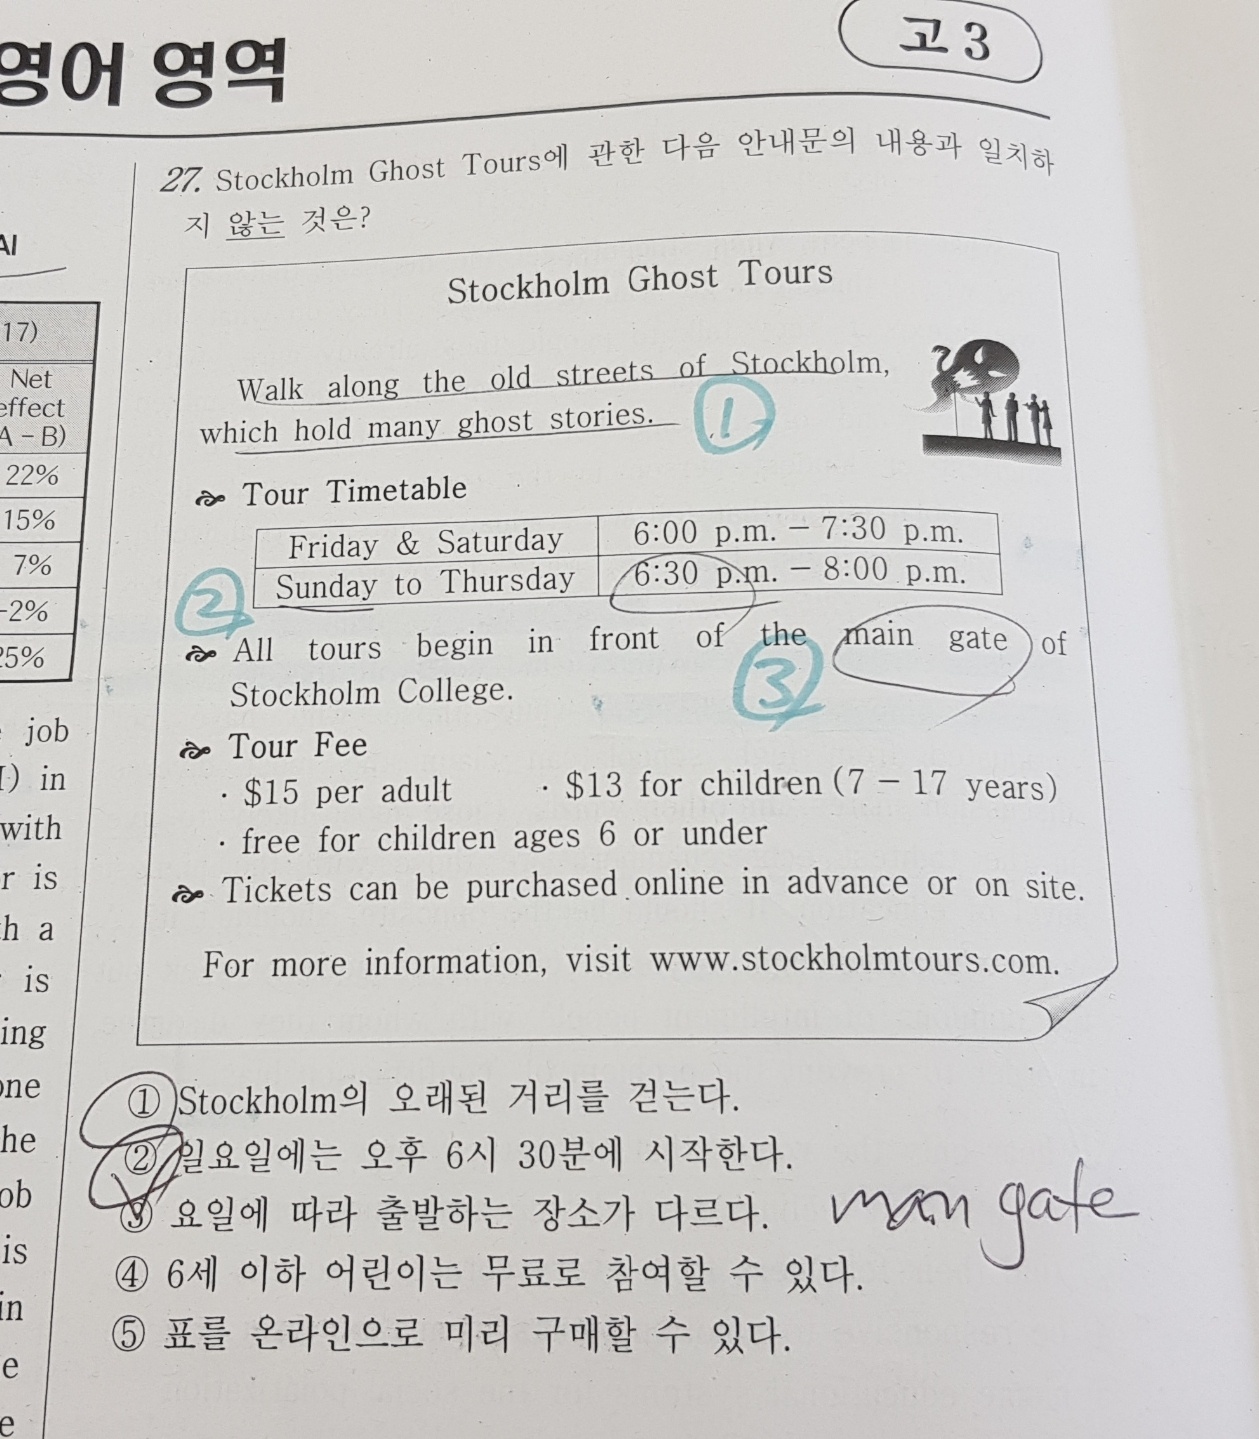 영어 영역
고 3
AI
17)
Net
effect
A – B)
22%
15%
7%
-2%
25%
job
I) in
with
r is
h a
is
ing
one
he
ob
is
in
e
e
27. Stockholm Ghost Tours에 관한 다음 안내문의 내용과 일치하
지 않는 것은?
Stockholm Ghost Tours
Walk along the old streets of Stockholm,
which hold many ghost stories.
1
Tour Timetable
Friday & Saturday 6:00 p.m. – 7:30 p.m.
2
Sunday to Thursday 6:30 p.m. – 8:00 p.m.
All tours begin in front of the main gate of
Stockholm College.
3
Tour Fee
· $15 per adult · $13 for children (7 – 17 years)
· free for children ages 6 or under
Tickets can be purchased online in advance or on site.
For more information, visit www.stockholmtours.com.
① Stockholm의 오래된 거리를 걷는다.
② 일요일에는 오후 6시 30분에 시작한다.
③ 요일에 따라 출발하는 장소가 다르다.
main gate
④ 6세 이하 어린이는 무료로 참여할 수 있다.
⑤ 표를 온라인으로 미리 구매할 수 있다.